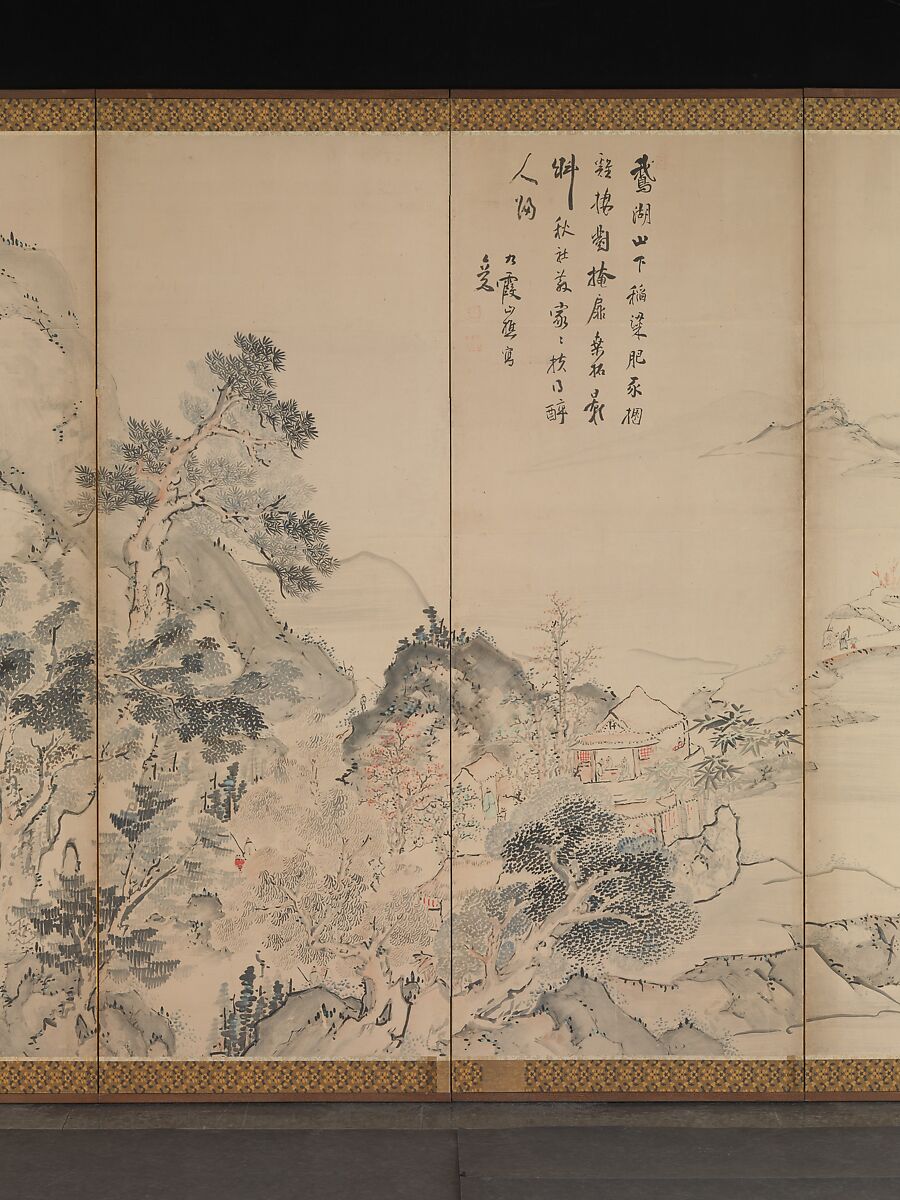 鵝湖山下稻粱肥豕柵
雞棲對掩扉桑柘影
斜秋社散家々扶得醉
人歸
九霞山樵寫